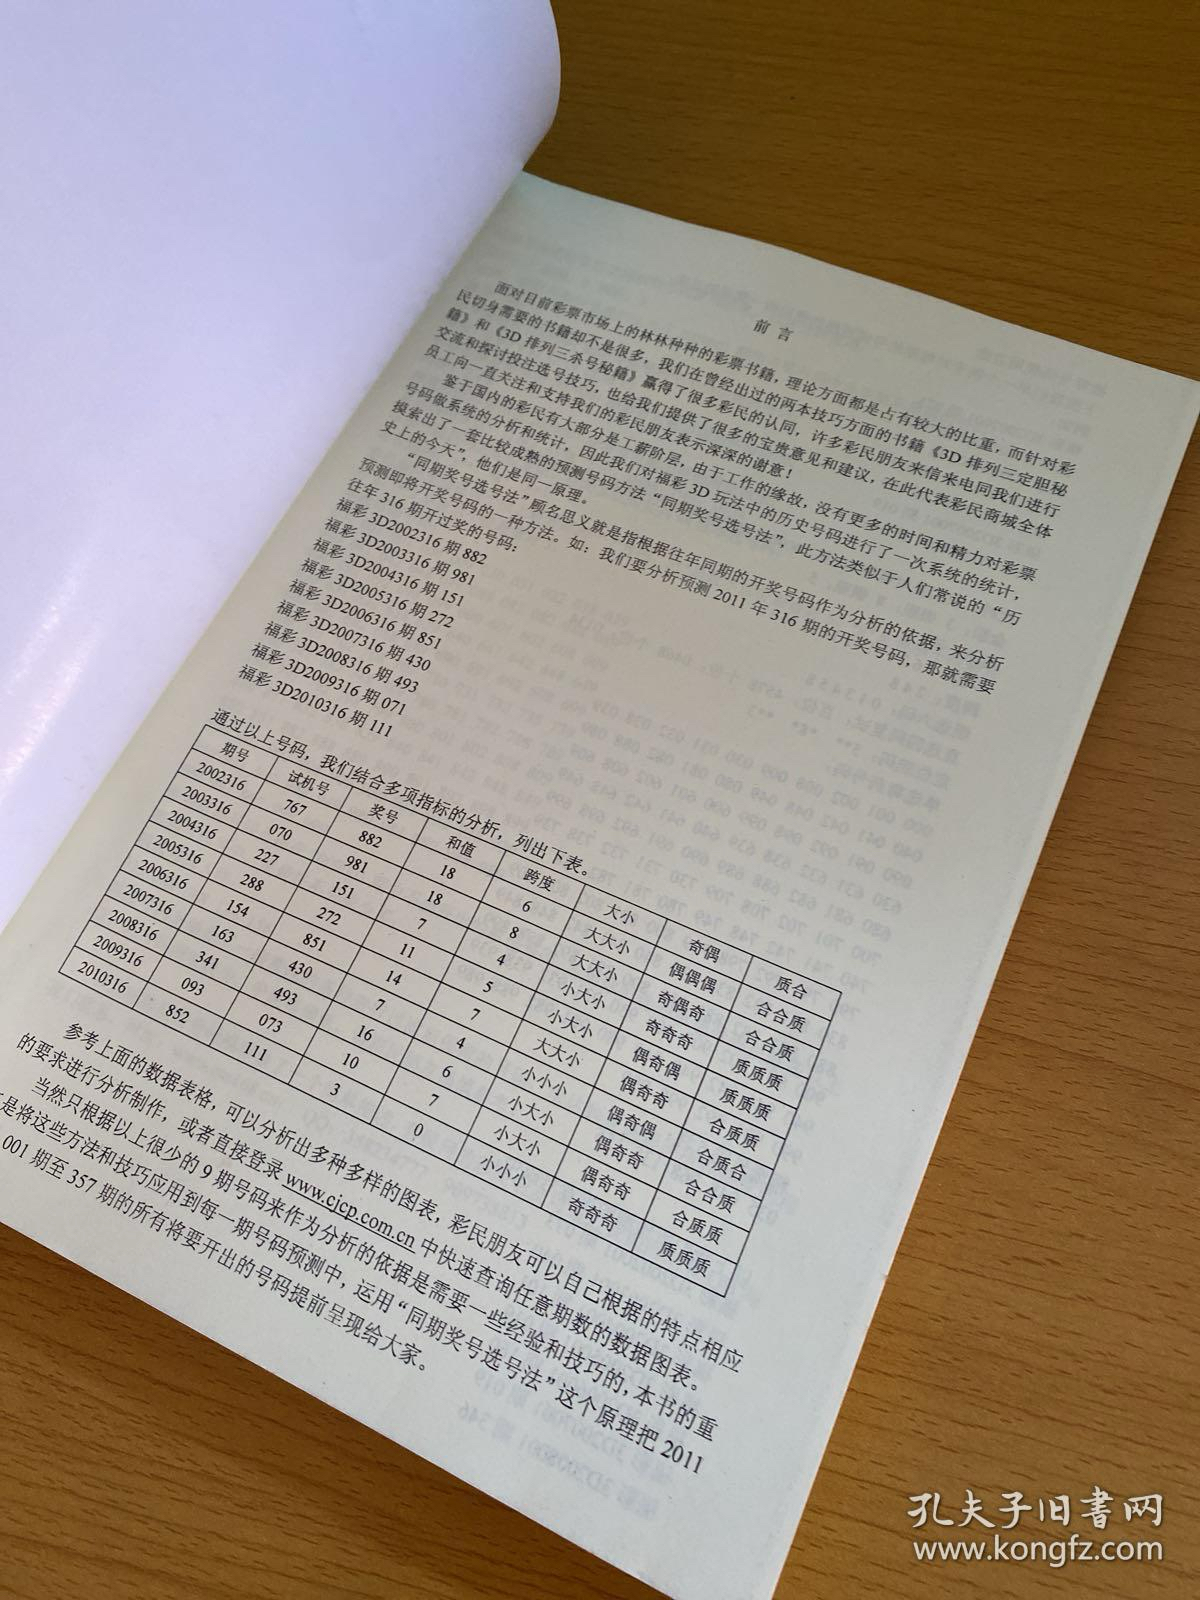 前 言
面对目前彩票市场上的林林种种的彩票书籍，理论方面都是占有较大的比重，而针对彩
民切身需要的书籍却不是很多，我们在曾经出过的两本技巧方面的书籍《3D 排列三定胆秘
籍》和《3D 排列三杀号秘籍》赢得了很多彩民的认同，许多彩民朋友来信来电同我们进行
交流和探讨投注选号技巧，也给我们提供了很多的宝贵意见和建议，在此代表彩民商城全体
员工向一直关注和支持我们的彩民朋友表示深深的谢意！
鉴于国内的彩民有大部分是工薪阶层，由于工作的缘故，没有更多的时间和精力对彩票
号码做系统的分析和统计，因此我们对福彩 3D 玩法中的历史号码进行了一次系统的统计，
摸索出了一套比较成熟的预测号码方法“同期奖号选号法”，此方法类似于人们常说的“历
史上的今天”，他们是同一原理。
“同期奖号选号法”顾名思义就是指根据往年同期的开奖号码作为分析的依据，来分析
预测即将开奖号码的一种方法。如：我们要分析预测 2011 年 316 期的开奖号码，那就需要
往年 316 期开过奖的号码：
福彩 3D2002316 期 882
福彩 3D2003316 期 981
福彩 3D2004316 期 151
福彩 3D2005316 期 272
福彩 3D2006316 期 851
福彩 3D2007316 期 430
福彩 3D2008316 期 493
福彩 3D2009316 期 071
福彩 3D2010316 期 111
通过以上号码，我们结合多项指标的分析，列出下表。
期号 试机号 奖号 和值 跨度 大小 奇偶 质合
2002316 767 882 18 6 大大小 偶偶偶 合合质
2003316 070 981 18 8 大大小 奇偶奇 合合质
2004316 227 151 7 4 小大小 奇奇奇 质质质
2005316 288 272 11 5 小大小 偶奇偶 质质质
2006316 154 851 14 7 大大小 偶奇奇 合质质
2007316 163 430 7 4 小小小 偶奇偶 合质合
2008316 341 493 16 6 小大小 偶奇奇 合合质
2009316 093 073 10 7 小大小 偶奇奇 合质质
2010316 852 111 3 0 小小小 奇奇奇 质质质
参考上面的数据表格，可以分析出多种多样的图表，彩民朋友可以自己根据的特点相应
的要求进行分析制作，或者直接登录 www.cjcp.com.cn 中快速查询任意期数的数据图表。
当然只根据以上很少的 9 期号码来作为分析的依据是需要一些经验和技巧的，本书的重
是将这些方法和技巧应用到每一期号码预测中，运用“同期奖号选号法”这个原理把 2011
001 期至 357 期的所有将要开出的号码提前呈现给大家。
孔夫子旧书网
www.kongfz.com